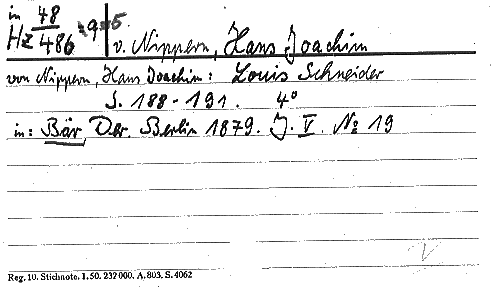 in 48
Hz 486 v. Nippern, Hans Joachim
von Nippern, Hans Joachim: Louis Schneider
S. 188-191. 4°
in: Bär, Der. Berlin 1879. J. V. № 19
Reg. 10. Stichnote. 1. 50. 232000. A. 803. S. 4062